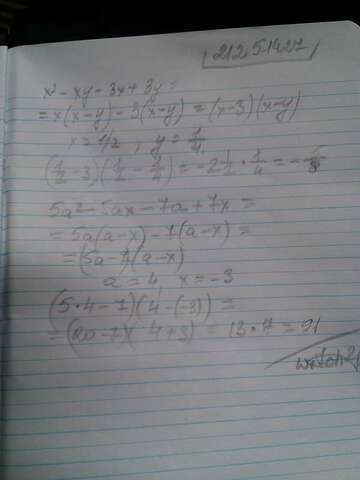 21251427
x² - xy - 3x + 3y =
= x(x-y) - 3(x-y) = (x-3)(x-y)
x = 1/2 , y = 1/4
(1/2 - 3)(1/2 - 1/4) = -2 1/2 · 1/4 = -5/8
5a² - 5ax - 7a + 7x =
= 5a(a-x) - 7(a-x) =
= (5a-7)(a-x)
a = 4 x = -3
(5·4-7)(4-(-3)) =
= (20-7)(4+3) = 13·7 = 91